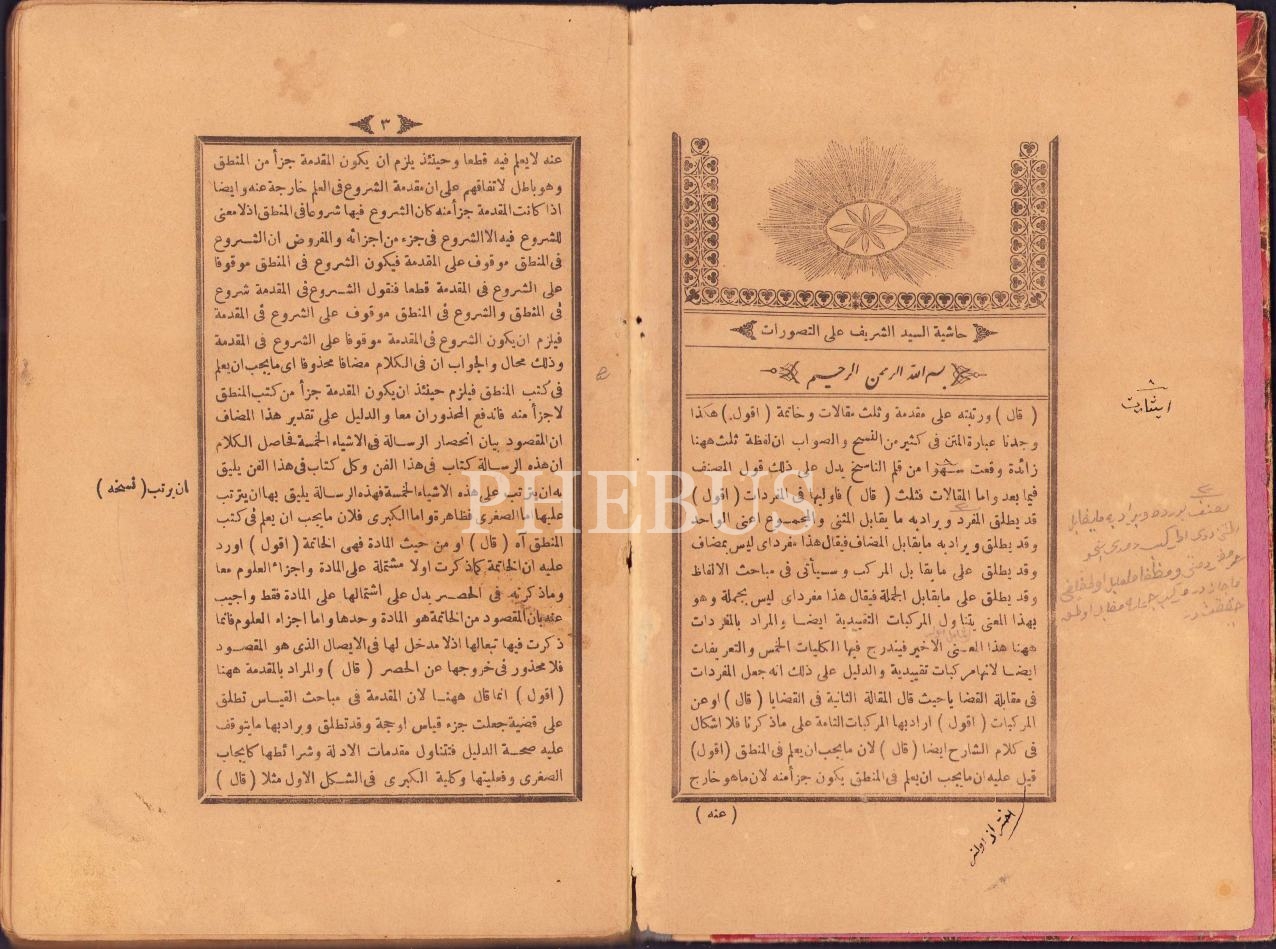 حاشية السيد الشريف على التصورات
بسم الله الرحمن الرحيم
( قال ) ورتبته على مقدمة وثلث مقالات وخاتمة ( اقول ) هكذا
وجدنا عبارة المتن فى كثير من النسخ والصواب ان لفظة ثلث ههنا
زائدة وقعت سهوا من قلم الناسخ يدل على ذلك قول المصنف
فيما بعد واما المقالات فثلث ( قال ) فاوليها فى المفردات ( اقول )
قد يطلق المفرد ويراد به ما يقابل المثنى والمجموع اعنى الواحد
وقد يطلق ويراد به مايقابل المضاف فيقال هذا مفرد اى ليس بمضاف
وقد يطلق على مايقابل المركب وسيأتى فى مباحث الالفاظ
وقد يطلق على مايقابل الجملة فيقال هذا مفرد اى ليس بجملة وهو
بهذا المعنى يتناول المركبات التقييدية ايضا والمراد بالمفردات
ههنا هذا المعنى الاخير فيندرج فيها الكليات الخمس والتعريفات
ايضا لانها مركبات تقييدية والدليل على ذلك انه جعل المفردات
فى مقابلة القضايا حيث قال المقالة الثانية فى القضايا ( قال ) او عن
المركبات ( اقول ) اراد بها المركبات التامة على ماذكرنا فلا اشكال
فى كلام الشارح ايضا ( قال ) لان مايجب ان يعلم فى المنطق ( اقول )
قيل عليه ان مايجب ان يعلم فى المنطق يكون جزأ منه لان ماهو خارج
( عنه )
٣
عنه لايعلم فيه قطعا وحينئذ يلزم ان يكون المقدمة جزأ من المنطق
وهو باطل لاتفاقهم على ان مقدمة الشروع فى العلم خارجة عنه وايضا
اذا كانت المقدمة جزأ منه كان الشروع فيها شروعا فى المنطق اذلا معنى
للشروع فيه الا الشروع فى جزء من اجزائه والمفروض ان الشروع
فى المنطق موقوف على المقدمة فيكون الشروع فى المنطق موقوفا
على الشروع فى المقدمة قطعا فنقول الشروع فى المقدمة شروع
فى المنطق والشروع فى المنطق موقوف على الشروع فى المقدمة
فيلزم ان يكون الشروع فى المقدمة موقوفا على الشروع فى المقدمة
وذلك محال والجواب ان فى الكلام مضافا محذوفا اى مايجب ان يعلم
فى كتب المنطق فيلزم حينئذ ان يكون المقدمة جزأ من كتب المنطق
لا جزأ منه فاندفع المحذوران معا والدليل على تقدير هذا المضاف
ان المقصود بيان انحصار الرسالة فى الاشياء الخمسة فحاصل الكلام
ان هذه الرسالة كتاب فى هذا الفن وكل كتاب فى هذا الفن يليق
به ان يترتب على هذه الاشياء الخمسة فهذه الرسالة يليق بها ان يترتب
ان يرتب ( نسخه )
عليها اما الصغرى فظاهرة واما الكبرى فلان مايجب ان يعلم فى كتب
المنطق آه ( قال ) او من حيث المادة فهى الخاتمة ( اقول ) اورد
عليه ان الخاتمة كما ذكرت اولا مشتملة على المادة واجزاء العلوم معا
وماذكرته فى الحصر يدل على اشتمالها على المادة فقط واجيب
عنه بان المقصود من الخاتمة هو المادة وحدها واما اجزاء العلوم فانما
ذكرت فيها تبعا لها اذلا مدخل لها فى الايصال الذى هو المقصود
فلا محذور فى خروجها عن الحصر ( قال ) والمراد بالمقدمة ههنا
( اقول ) انما قال ههنا لان المقدمة فى مباحث القياس تطلق
على قضية جعلت جزء قياس او حجة وقد تطلق ويراد بها مايتوقف
عليه صحة الدليل فتتناول مقدمات الادلة وشرائطها كايجاب
الصغرى وفعليتها وكلية الكبرى فى الشكل الاول مثلا ( قال )
PHEBUS